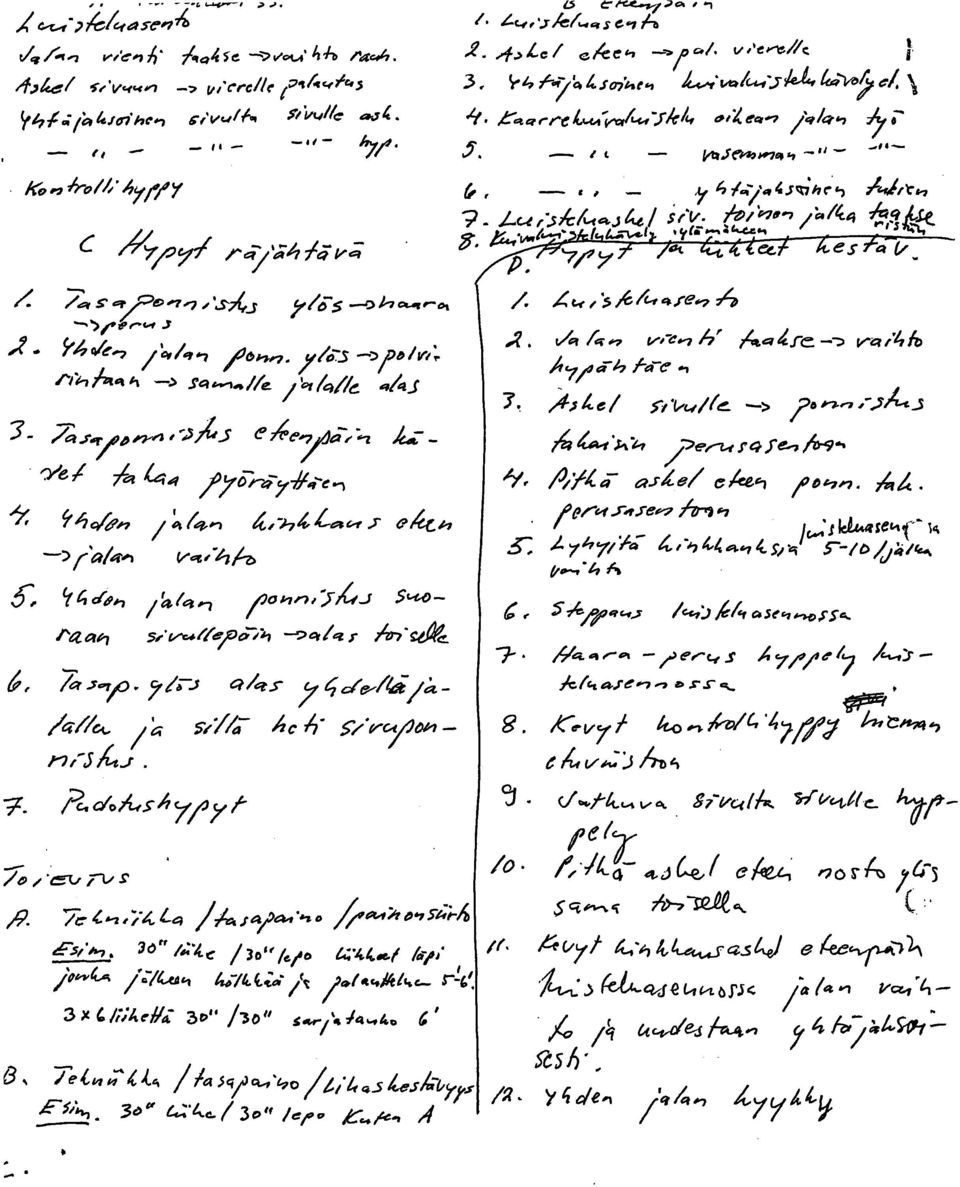 Luisteluasento
Jalan vienti taakse → vaihto rauh.
Askel sivuun → vierelle palautus
Yhtäjaksoinen sivulta sivulle ask.
— " — — " — — " — hyp.
Kontrollihyppy
B Eteenpäin
1. Luisteluasento
2. Askel eteen → pal. vierelle
3. Yhtäjaksoinen kuivaluistelukävelyet.
4. Kaarrekuivaluistelu oikean jalan työ
5. — " — vasemman — " — — " —
6. — " — yhtäjaksoinen tukien
7. Luisteluaskel siv. toinen jalka taakse ristiin
8. Kuivaluistelukävely ylämäkeen
C Hypyt räjähtävä
1. Tasaponnistus ylös → haara
→ perus
2. Yhden jalan ponn. ylös → polvi-
rintaan → samalle jalalle alas
3. Tasaponnistus eteenpäin kä-
det takaa pyöräyttäen
4. Yhden jalan kinkkaus eteen
→ jalan vaihto
5. Yhden jalan ponnistus suo-
raan sivullepäin → alas toiselle
6. Tasap. ylös alas yhdellä ja-
lalla ja siltä heti sivupon-
nistus.
7. Pudotushypyt
TOTEUTUS
A. Tekniikka / tasapaino / painonsiirto
Esim. 30" liike / 30" lepo liikkeet läpi
jonka jälkeen hölkkää ja palauttelua 5'-6'.
3 x 6 liikettä 30" / 30" sarjatauko 6'
B. Tekniikka / tasapaino / Lihaskestävyys
Esim. 30" liike / 30" lepo Kuten A
D. Hypyt ja liikkeet kestäv.
1. Luisteluasento
2. Jalan vienti taakse → vaihto
hypähtäen
3. Askel sivulle → ponnistus
takaisin perusasentoon
4. Pitkä askel eteen ponn. tak.
perusasentoon
5. Lyhyitä kinkkauksia luisteluasent 5-10 / jalka
vaihto
6. Steppaus luisteluasennossa
7. Haara - perus hyppely luis-
teluasennossa
8. Kevyt kontrollihyppy hieman
etuviistoon
9. Jatkuva sivulta sivulle hyp-
pely
10. Pitkä askel eteen nosto ylös
sama toisella
11. Kevyt kinkkausaskel eteenpäin
luisteluasennossa jalan vaih-
to ja uudestaan yhtäjaksoi-
sesti.
12. Yhden jalan kyykky